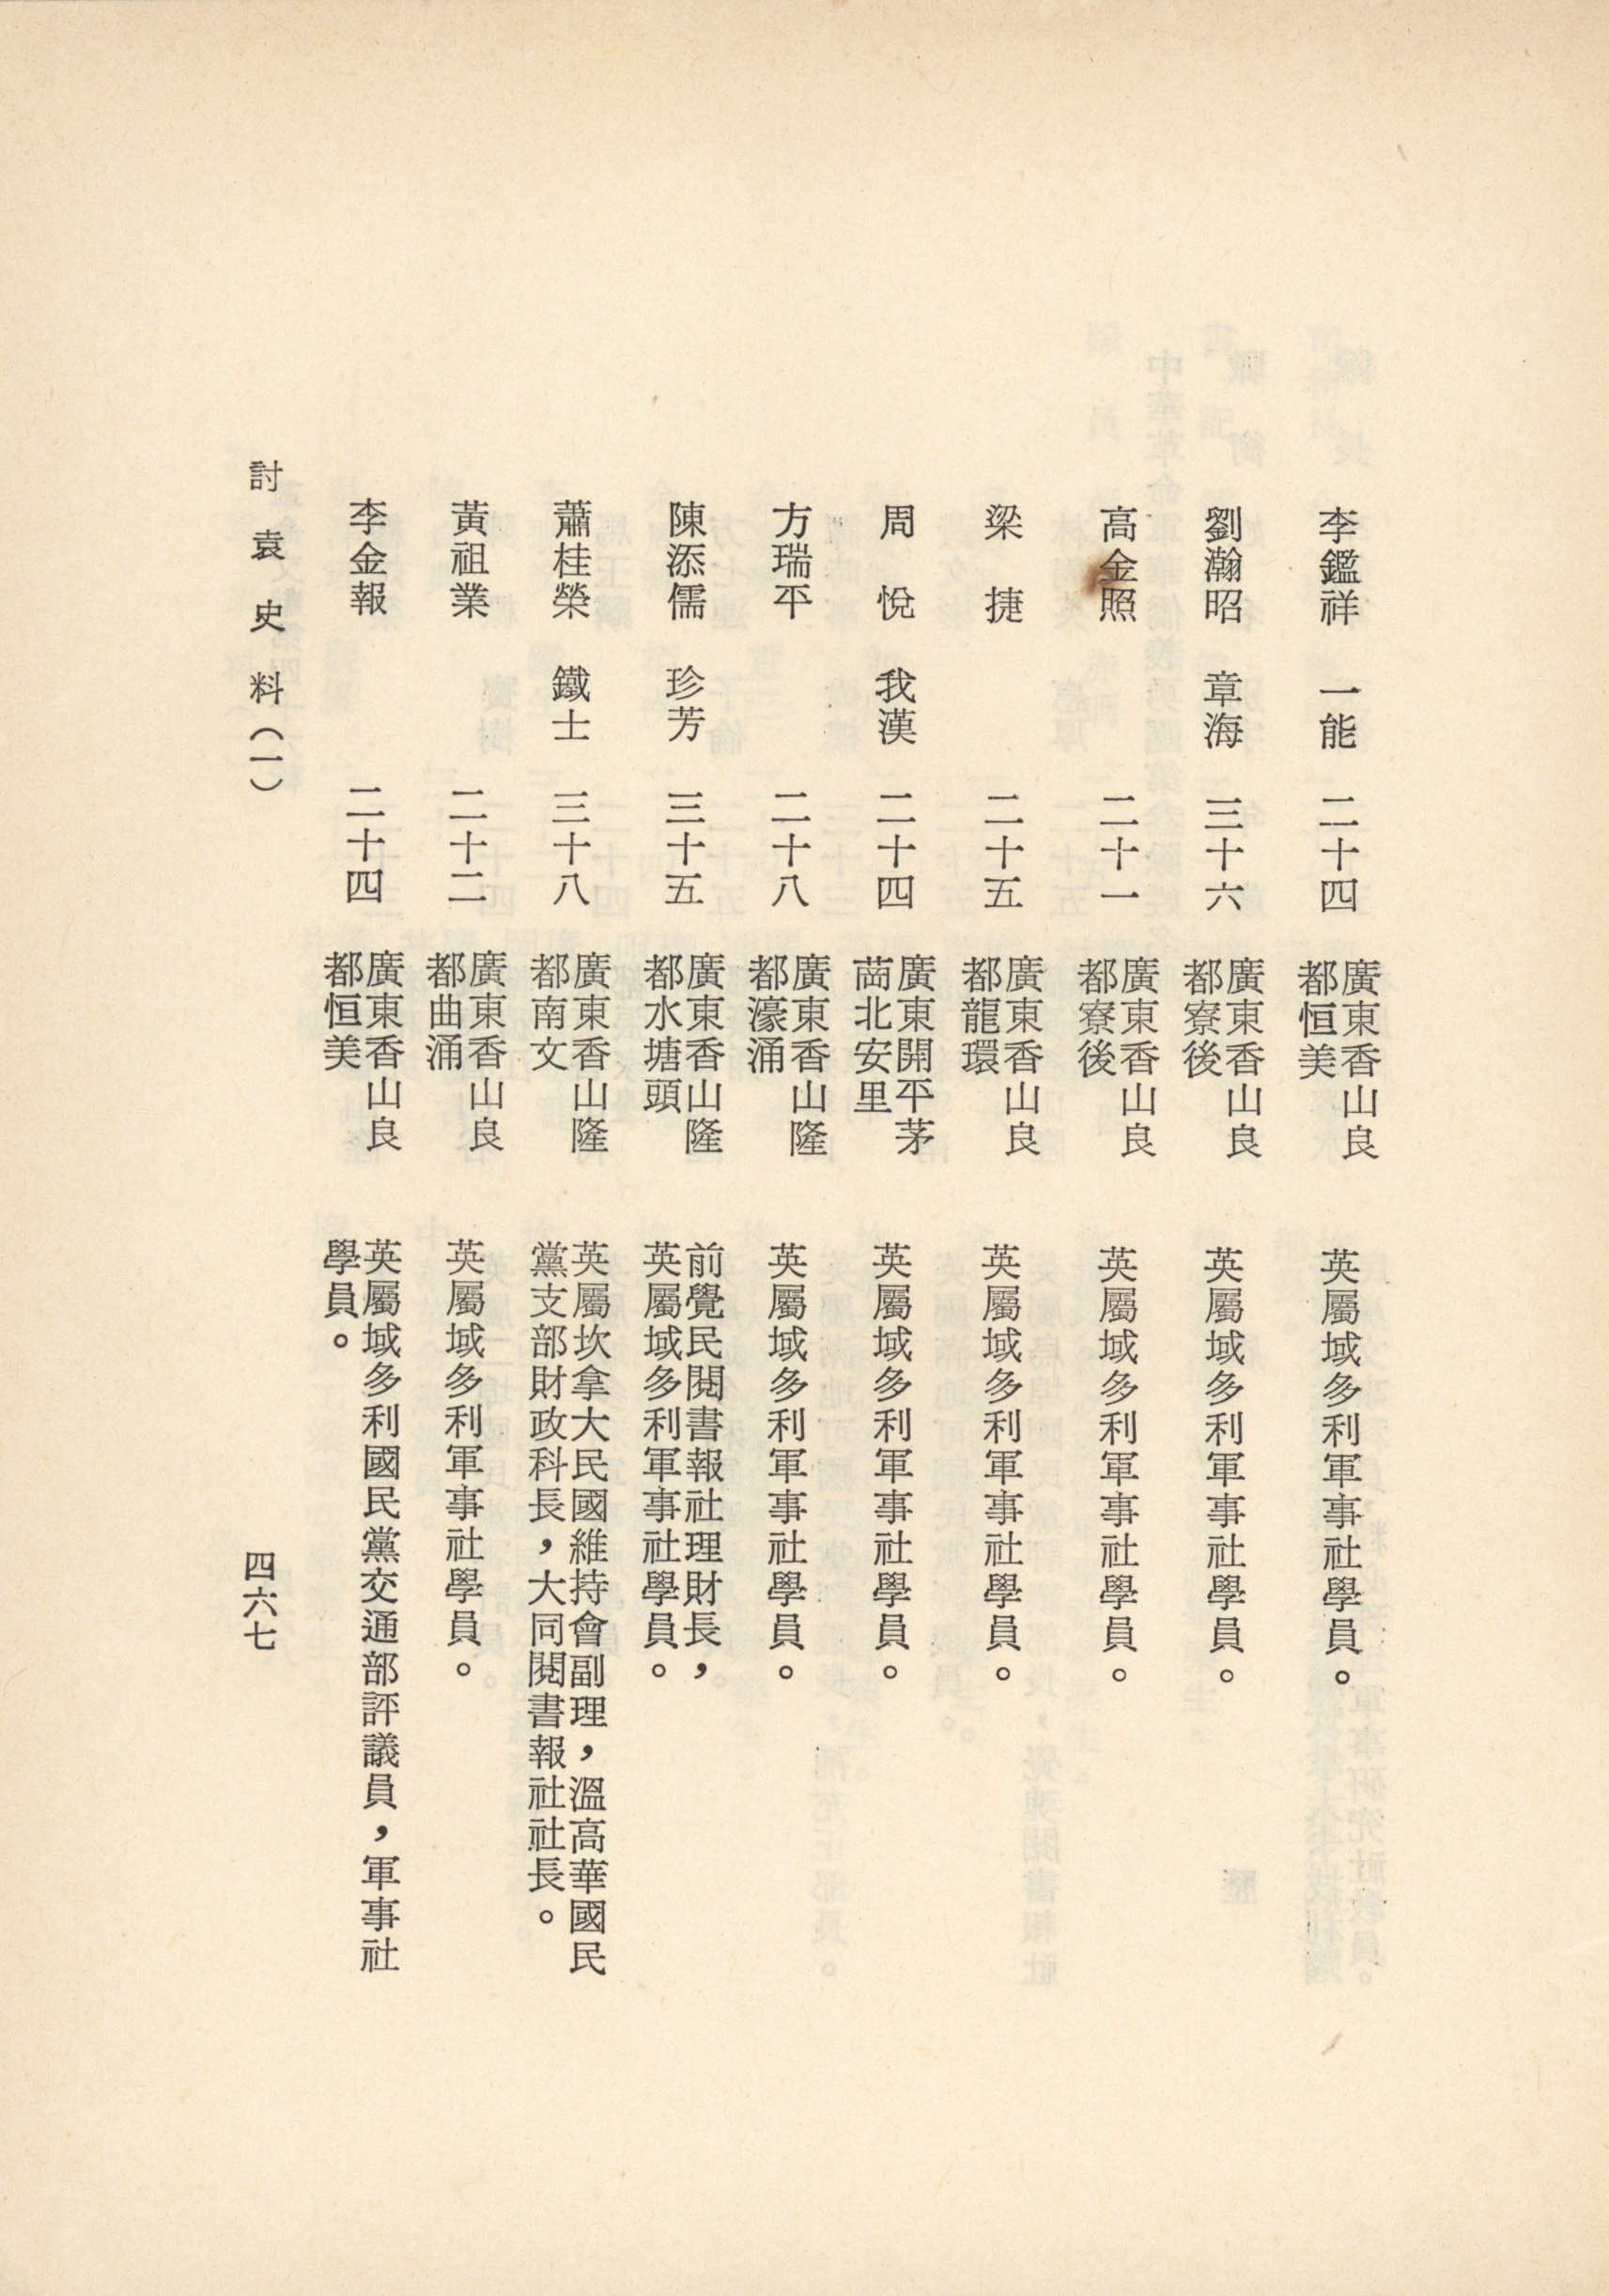 李鑑祥　一能　二十四　廣東香山良
都恒美　英屬域多利軍事社學員。
劉瀚昭　章海　三十六　廣東香山良
都寮後　英屬域多利軍事社學員。
高金照　二十一　廣東香山良
都寮後　英屬域多利軍事社學員。
梁　捷　二十五　廣東香山良
都龍環　英屬域多利軍事社學員。
周　悅　我漢　二十四　廣東開平茅
莔北安里　英屬域多利軍事社學員。
方瑞平　二十八　廣東香山隆
都濠涌　英屬域多利軍事社學員。
陳添儒　珍芳　三十五　廣東香山隆
都水塘頭　前覺民閱書報社理財長，
英屬域多利軍事社學員。
蕭桂榮　鐵士　三十八　廣東香山隆
都南文　英屬坎拿大民國維持會副理，溫高華國民
黨支部財政科長，大同閱書報社社長。
黃祖業　二十二　廣東香山良
都曲涌　英屬域多利軍事社學員。
李金報　二十四　廣東香山良
都恒美　英屬域多利國民黨交通部評議員，軍事社
學員。
討袁史料（一）
四六七